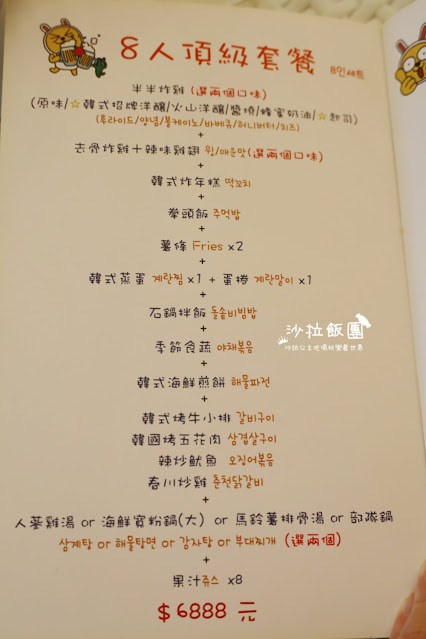 8人頂級套餐 8인세트
半半炸雞 (選兩個口味)
(原味/☆韓式招牌洋釀/火山洋釀/醬燒/蜂蜜奶油/☆起司)
(후라이드/양념/볼케이노/바베큐/허니버터/치즈)
+
去骨炸雞+辣味雞翅 윙/매운맛(選兩個口味)
+
韓式炸年糕 떡꼬치
+
拳頭飯 주먹밥
+
薯條 Fries x2
+
韓式蒸蛋 계란찜 x1 + 蛋捲 계란말이 x1
+
石鍋拌飯 돌솥비빔밥
+
季節食蔬 야채볶음
+
韓式海鮮煎餅 해물파전
+
韓式烤牛小排 갈비구이
韓國烤五花肉 삼겹살구이
辣炒魷魚 오징어볶음
春川炒雞 춘천닭갈비
+
人蔘雞湯 or 海鮮寬粉鍋(大) or 馬鈴薯排骨湯 or 部隊鍋
삼계탕 or 해물탕면 or 감자탕 or 부대찌개 (選兩個)
+
果汁쥬스 x8
$6888 元
沙拉飯團
沙拉公主吃喝玩樂看世界